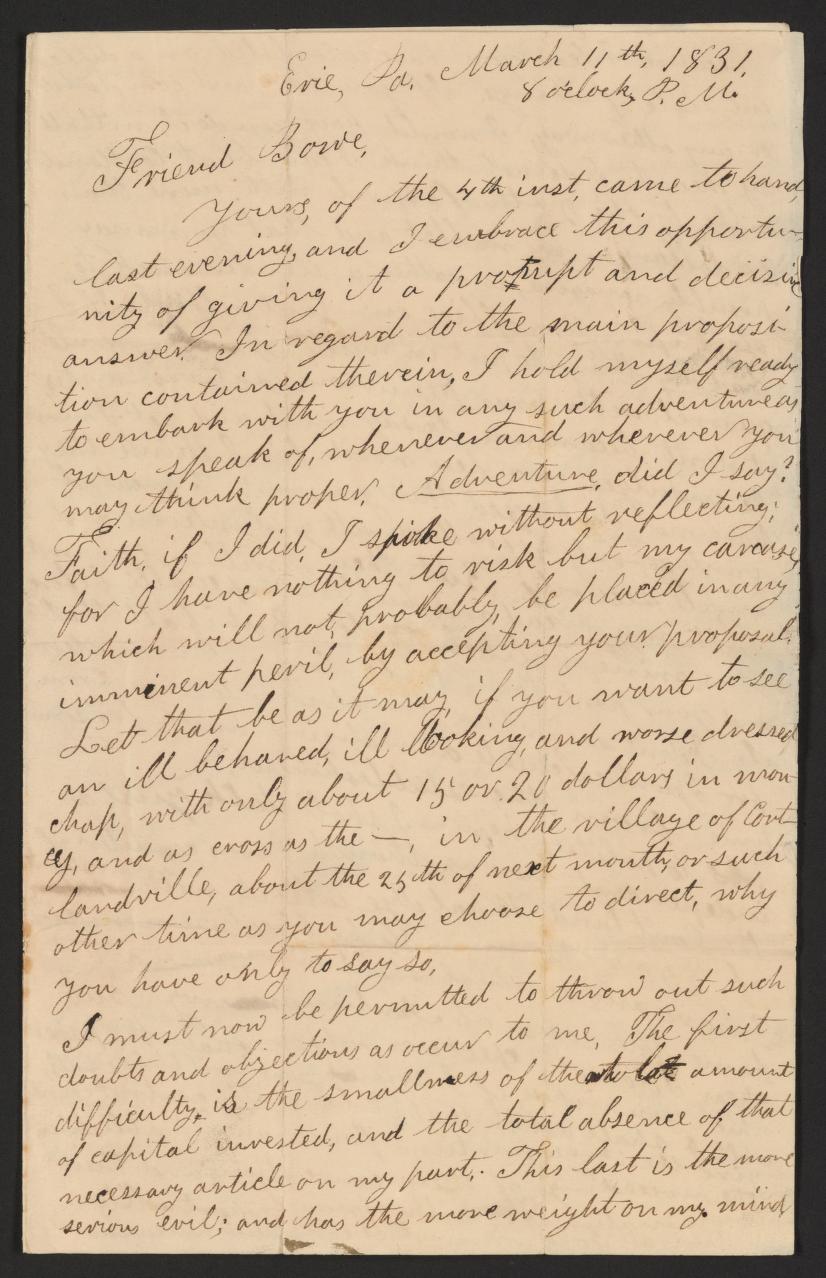 Erie, Pa. March 11th, 1831.
8 o'clock, P. M.
Friend Bowe,
Yours, of the 4th inst, came to hand,
last evening, and I embrace this opportu-
nity of giving it a prompt and decisive
answer. In regard to the main proposi-
tion contained therein, I hold myself ready
to embark with you in any such adventure as
you speak of, whenever and wherever you
may think proper. Adventure, did I say?
Faith, if I did, I spoke without reflecting;
for I have nothing to risk but my carcase,
which will not, probably, be placed in any
imminent peril, by accepting your proposal.
Let that be as it may, if you want to see
an ill behaved, ill looking, and worse dressed
chap, with only about 15 or 20 dollars in mon-
ey, and as cross as the —, in the village of Cort-
landville, about the 25th of next month, or such
other time as you may choose to direct, why
you have only to say so,
I must now be permitted to throw out such
doubts and objections as occur to me. The first
difficulty, is the smallness of the amount
of capital invested, and the total absence of that
necessary article on my part. This last is the more
serious evil; and has the more weight on my mind